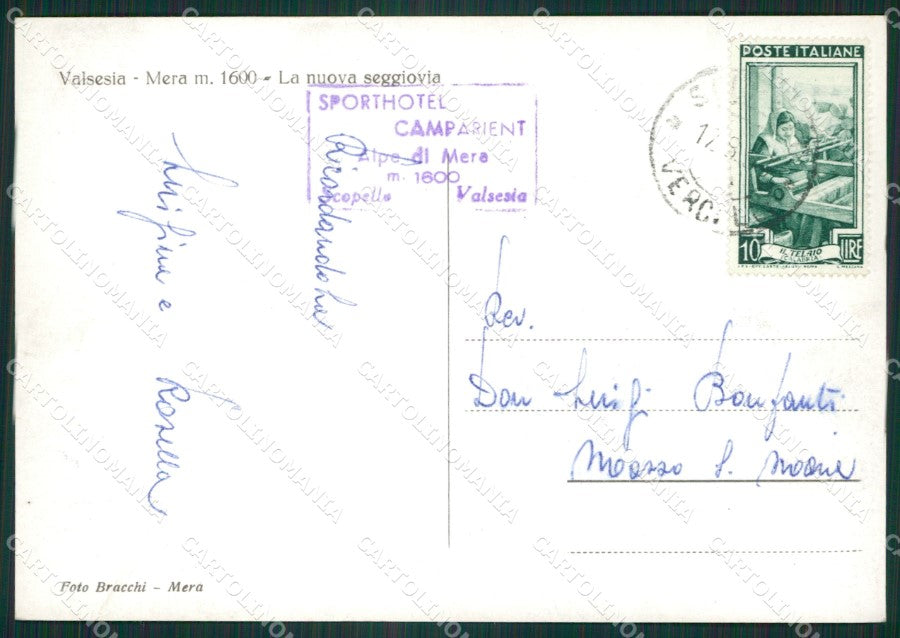 Valsesia - Mera m. 1600 - La nuova seggiovia
SPORTHOTEL
CAMPARIENT
Alpe di Mera
m. 1600
Scopello Valsesia
Ricordandola
Luigina e Rosella
POSTE ITALIANE
10 LIRE
IL TELAIO
VERC
Rev.
Don Luigi Bonfanti
Foto Bracchi - Mera
CARTOLINOMANIA